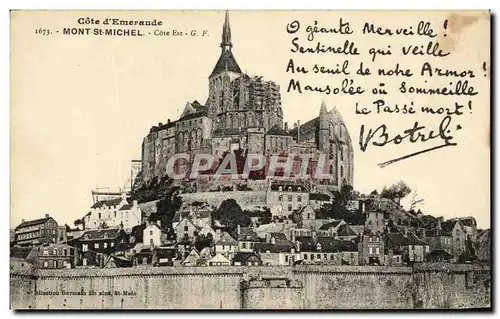 Côte d'Emeraude
1673. - MONT St-MICHEL. - Côte Est - G. F.
O géante Merveille !
Sentinelle qui veille
Au seuil de notre Armor !
Mausolée où Sommeille
Le Passé mort !
Botrel
CPARAMA
Collection Germain fils aîné, St-Malo